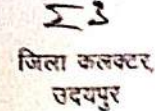 जिला कलक्टर,
उदयपुर